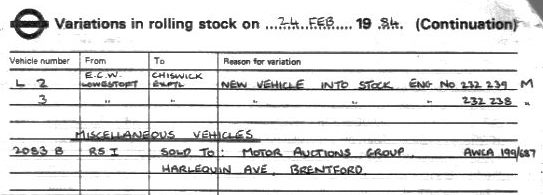 Variations in rolling stock on ...24 FEB..... 19 84. (Continuation)
Vehicle number From To Reason for variation
L 2 E.C.W. LOWESTOFT CHISWICK EXPTL NEW VEHICLE INTO STOCK ENG NO 232 239 M
3 " " " " " 232 238 "
MISCELLANEOUS VEHICLES
2083 B RS I SOLD TO: MOTOR AUCTIONS GROUP. AWCA 199/687
HARLEQUIN AVE, BRENTFORD.